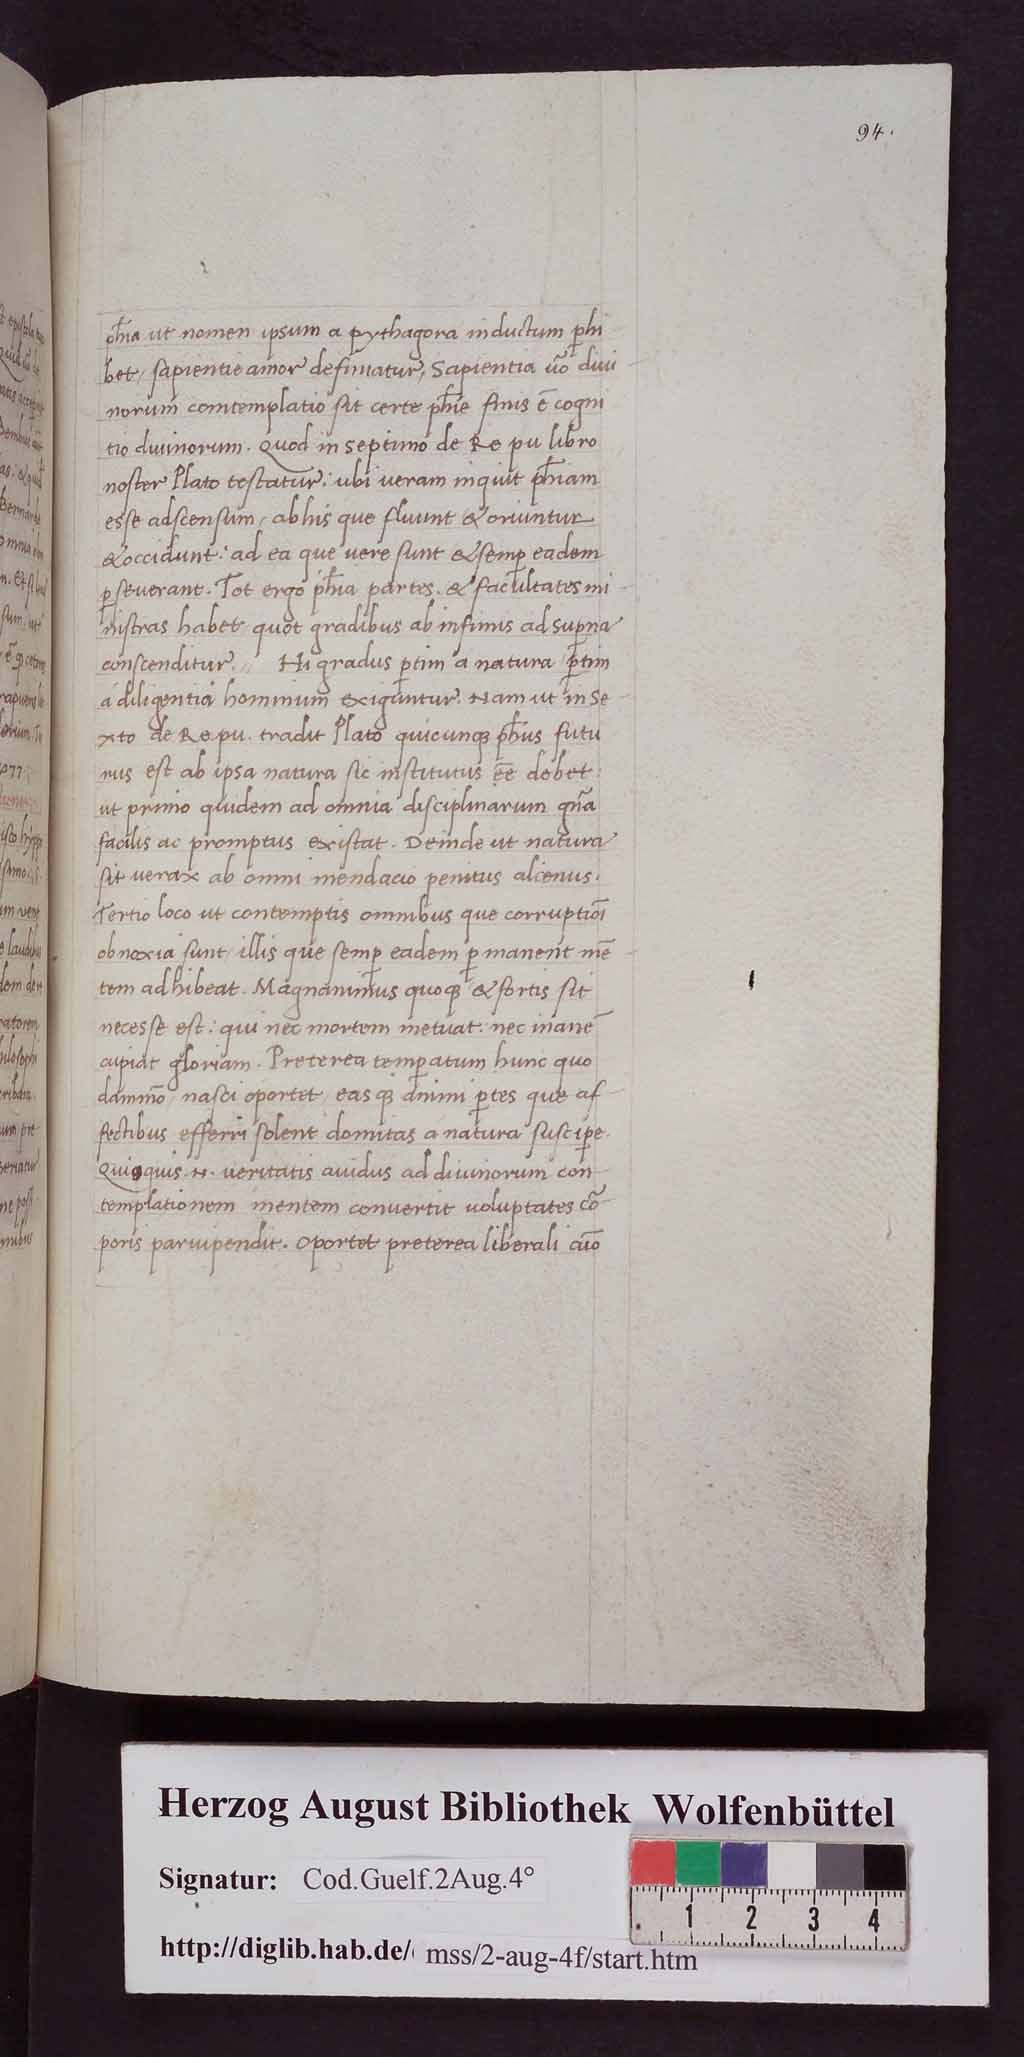 94.
ph̄ia ut nomen ipsum a pythagora inductum phi
bet, sapientie amor definiatur, Sapientia uõ diui
norum comtemplatio sit certe ph̄ie finis ē cogni
tio diuinorum. Quod in septimo de Re pu libro
noster Plato testatur: ubi ueram inquit ph̄iam
esse adscensum, ab his que fluunt & oriuntur
& occidunt: ad ea que vere sunt & semp̱ eadem
p̱seuerant. Tot ergo ph̄ia partes. & facultates mi
nistras habet quot gradibus ab infimis ad sup̱na
conscenditur. Hi gradus p̱tim a natura p̱tim
a diligentia hominum exiguntur. Nam ut in se
xto de Re.pu. tradit Plato quicunq̨ ph̄us futu
rus est ab ipsa natura sic institutus ēē debet:
ut primo quidem ad omnia disciplinarum gn̄a
facilis ac promptus existat. Deinde ut natura
sit verax ab omni mendacio penitus alienus.
Tertio loco ut contemptis omnibus que corruptiōi
obnoxia sunt, illis que semp̱ eadem p̱manent mē
tem adhibeat. Magnanimus quoq̨ & fortis sit
necesse est: qui nec mortem metuat: nec inanē
cupiat gloriam. Preterea temp̱atum hunc quo
dāmō nasci oportet, easq̨ animi p̱tes que af
fectibus efferri solent domitas a natura suscip̱e.
Quisquis .n. veritatis auidus ad diuinorum con
templationem mentem convertit uoluptates cō
poris paruipendit. Oportet preterea liberali aīo
Herzog August Bibliothek Wolfenbüttel
Signatur: Cod.Guelf.2Aug.4°
http://diglib.hab.de/ mss/2-aug-4f/start.htm
1 2 3 4